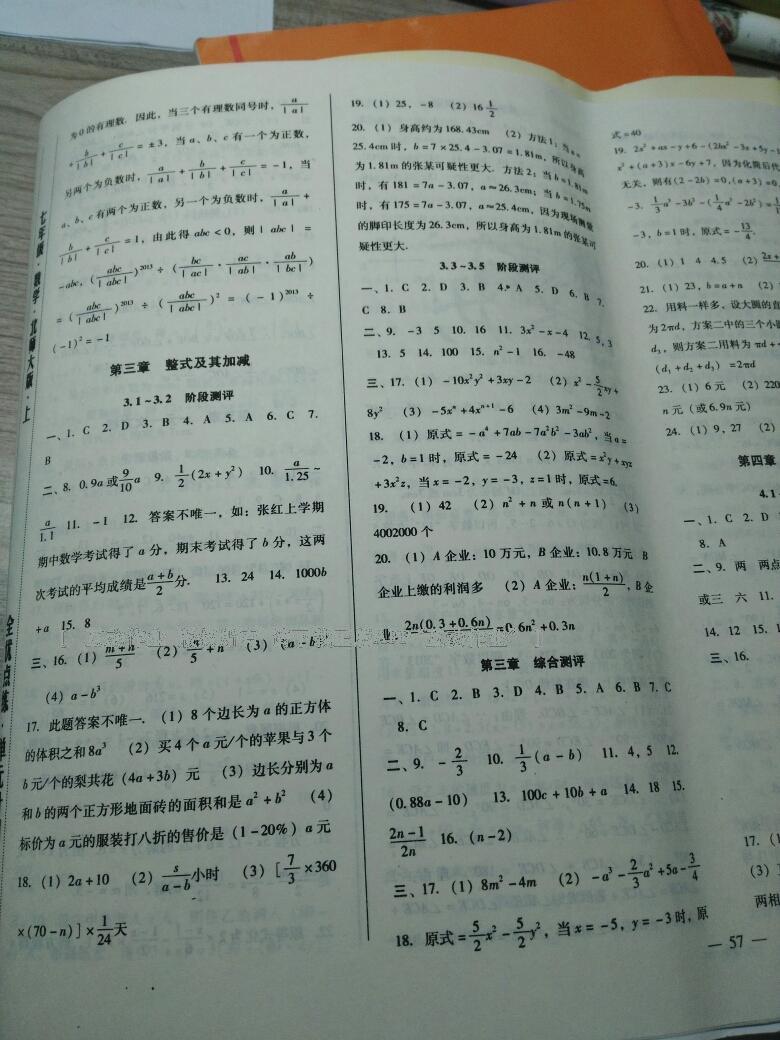 为0的有理数. 因此, 当三个有理数同号时, a/|a|
+b/|b|+c/|c|=±3, 当a、b、c有一个为正数,
另两个为负数时, a/|a|+b/|b|+c/|c|=-1, 当
a、b、c有两个为正数, 另一个为负数时, a/|a|+
b/|b|+c/|c|=1, 由此得abc<0, 则|abc|=
-abc, (abc/|abc|)^2013÷(bc/|ac|·ac/|ab|·ab/|bc|)
=(abc/|abc|)^2013÷(abc/|abc|)^2=(-1)^2013÷
(-1)^2=-1
第三章 整式及其加减
3.1~3.2 阶段测评
一、1. C 2. D 3. B 4. A 5. A 6. C 7.
B
二、8. 0.9a或9/10a 9. 1/2(2x+y²) 10. a/1.25~
a/1.1 11. -1 12. 答案不唯一, 如: 张红上学期
期中数学考试得了a分, 期末考试得了b分, 这两
次考试的平均成绩是(a+b)/2分. 13. 24 14. 1000b
+a 15. 8
三、16. (1) (m+n)/5 (2) +n (3)
(4) a-b³
17. 此题答案不唯一. (1) 8个边长为a的正方体
的体积之和8a³ (2) 买4个a元/个的苹果与3个
b元/个的梨共花(4a+3b)元 (3) 边长分别为a
和b的两个正方形地面砖的面积和是a²+b² (4)
标价为a元的服装打八折的售价是(1-20%)a元
18. (1) 2a+10 (2) s/(a-b)小时 (3) [7/3×360
×(70-n)]×1/24天
19. (1) 25, -8 (2) 16 1/2
20. (1) 身高约为168.43cm (2) 方法1: 当a=
25.4cm时, b=7×25.4-3.07=1.81m, 所以身高
为1.81m的张某可疑性更大. 方法2: 当b=1.81m
时, 有181=7a-3.07, a≈26.3cm; 当b=1.75m
时, 有175=7a-3.07, a≈25.4cm, 因为现场测量
的脚印长度为26.3cm, 所以身高为1.81m的张某可
疑性更大.
3.3~3.5 阶段测评
一、1. C 2. D 3. B 4. A 5. D 6. B 7.
C 8. B
二、9. -3 5 10. 16 11. 3x²-x-4 12. 5, 3
13. 5 14. 100 15. n²-1 16. -48
三、17. (1) -10x²y²+3xy-2 (2) x²-5/2xy+
8y² (3) -5xⁿ+4xⁿ⁺¹-6 (4) 3m²-9m-2
18. (1) 原式=-a⁴+7ab-7a²b²-3ab², 当a=
-2, b=1时, 原式=-24 (2) 原式=x²y+xyz
+3x²z, 当x=-2, y=-3, z=1时, 原式=6.
19. (1) 42 (2) n²+n或n(n+1) (3)
4002000个
20. (1) A企业: 10万元, B企业: 10.8万元 B
企业上缴的利润多 (2) A企业: n(1+n)/2, B企
业: 2n(0.3+0.6n)/2=0.6n²+0.3n
第三章 综合测评
一、1. C 2. B 3. D 4. B 5. A 6. B 7. C
8. C
二、9. -2/3 10. 1/3(a-b) 11. 4, 5 12.
(0.88a-10) 13. 100c+10b+a 14. 18 15.
(2n-1)/2n 16. (n-2)
三、17. (1) 8m²-4m (2) -a³-2/3a²+5a-3/4
18. 原式=5/2x²-5/2y², 当x=-5, y=-3时, 原
式=40
19. 2x²+ax-y+6-(2bx²-3x+5y-1
x²+(a+3)x-6y+7, 因为化简后代
无关, 则有(2-2b)=0, (a+3)=0
-3. 1/3a³-3b²-(1/4a³-2b²)=1
-3, b=1时, 原式=-13/4.
20. (1) 1 4 4.5 (2)
21. (1) 23, b=a+n (2)
22. 用料一样多, 设大圆的直
为2πd, 方案二中的三个小圆
d₃, 则方案二用料为πd+
(d₁+d₂+d₃)=2πd
23. (1) 6元 (2) 220
n元(或6.9n元)
24. (1) 9, 27 (2)
第四章
4.1
一、1. C 2. D
8. A
二、9. 两 两点
或三 六 11.
14. 12 15. 1
三、16.
17. (1
(3)
两相
— 57 —
七年级·数学·北师大版·上
全优点练·单元